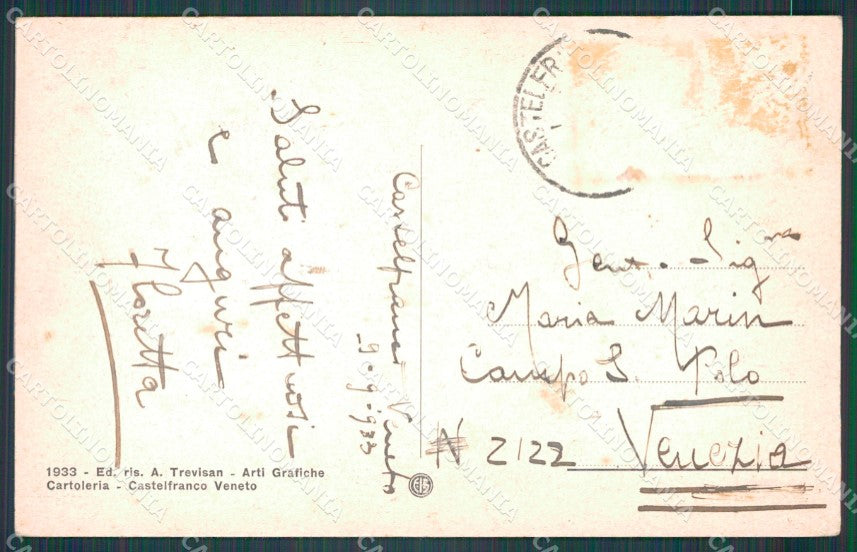 CASTELFR
Castelfranco Veneto
9-9-933
Saluti affettuosi
e auguri
Gent. Sigra
Maria Marin
Campo S. Polo
N 2122 Venezia
1933 - Ed. ris. A. Trevisan - Arti Grafiche
Cartoleria - Castelfranco Veneto
CARTOLINOMANIA